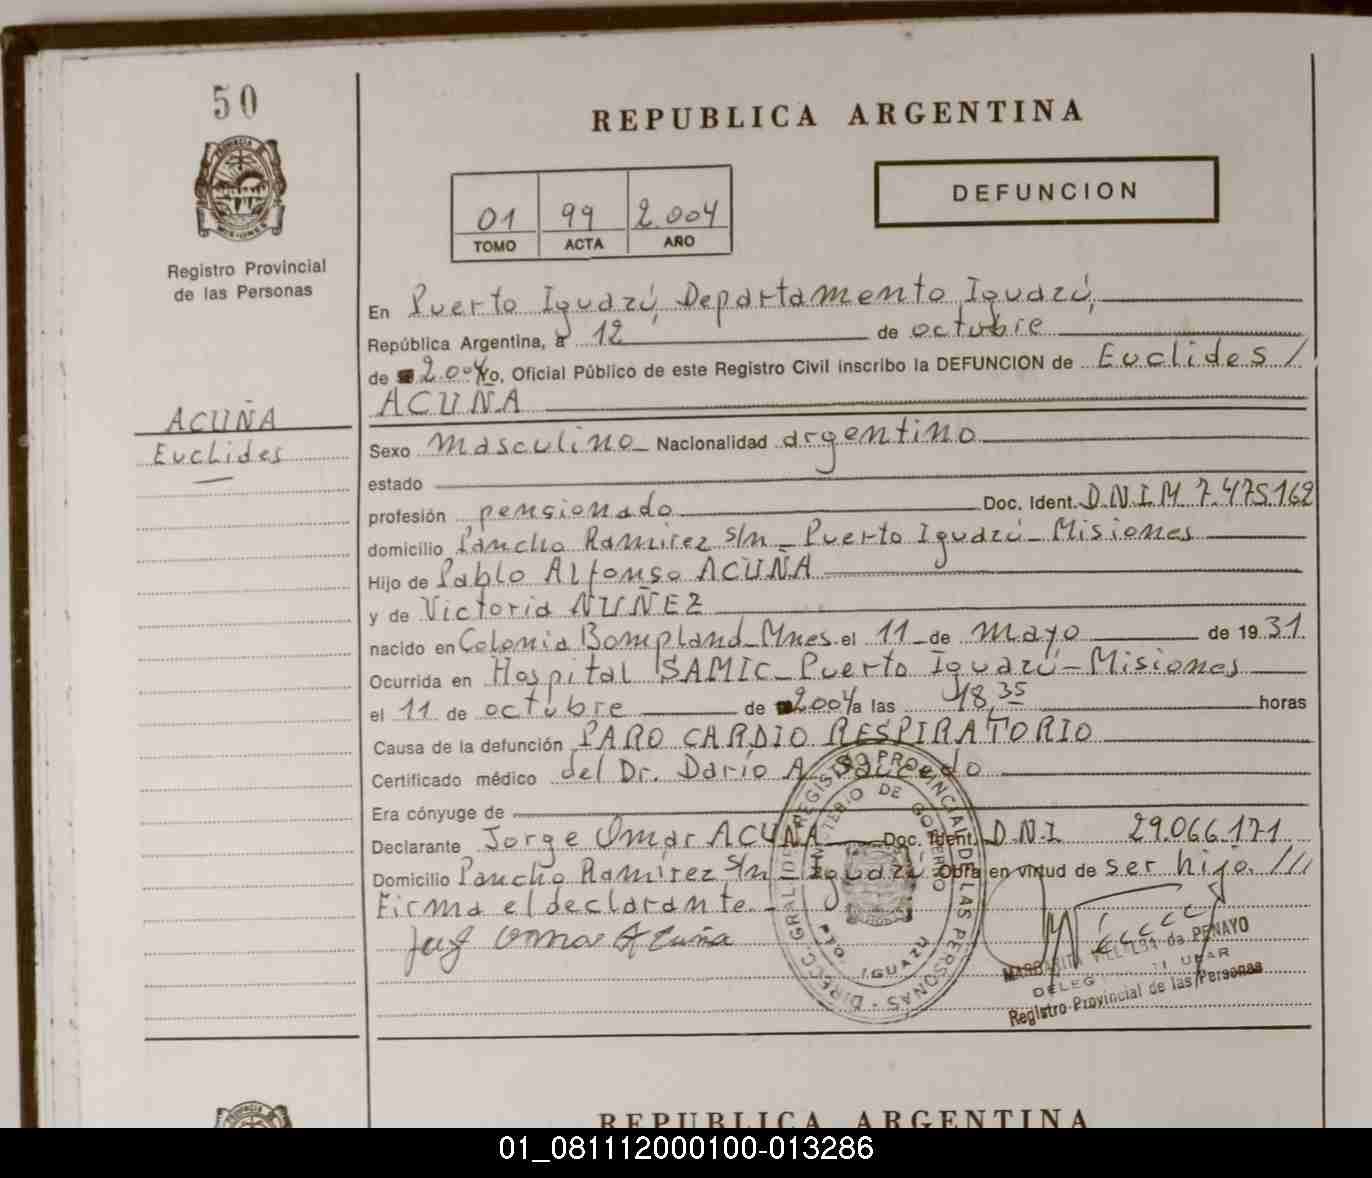 50
PROVINCIA DE
MISIONES
Registro Provincial
de las Personas
ACUÑA
Euclides
REPUBLICA ARGENTINA
01 99 2.004
TOMO ACTA AÑO
DEFUNCION
En Puerto Iguazú, Departamento Iguazú,
República Argentina, a 12 de octubre
de 2.004 yo, Oficial Público de este Registro Civil inscribo la DEFUNCION de Euclides /
ACUÑA
Sexo masculino Nacionalidad argentino
estado
profesión pensionado Doc. Ident. D.N.I.M 7.475.162
domicilio Pancho Ramirez s/n - Puerto Iguazú - Misiones
Hijo de Pablo Alfonso ACUÑA
y de Victoria NUÑEZ
nacido en Colonia Bompland - Mnes. el 11 de mayo de 1931
Ocurrida en Hospital SAMIC - Puerto Iguazú - Misiones
el 11 de octubre de 2004 a las 18,35 horas
Causa de la defunción PARO CARDIO RESPIRATORIO
Certificado médico del Dr. Darío A. Saucedo
Era cónyuge de
Declarante Jorge Omar ACUÑA Doc. Ident. D.N.I 29.066.171
Domicilio Pancho Ramírez s/n - Iguazú Obra en virtud de ser hijo. ///
Firma el declarante. -
Omar Acuña
DIRECC. GRAL. DE REGISTRO PROVINCIAL DE LAS PERSONAS
MINISTERIO DE GOBIERNO
IGUAZU
MARGARITA de PENAYO
Registro Provincial de las Personas
REPUBLICA ARGENTINA
01_081112000100-013286